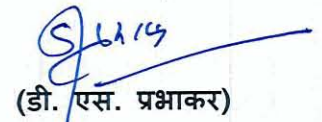 (डी. एस. प्रभाकर)